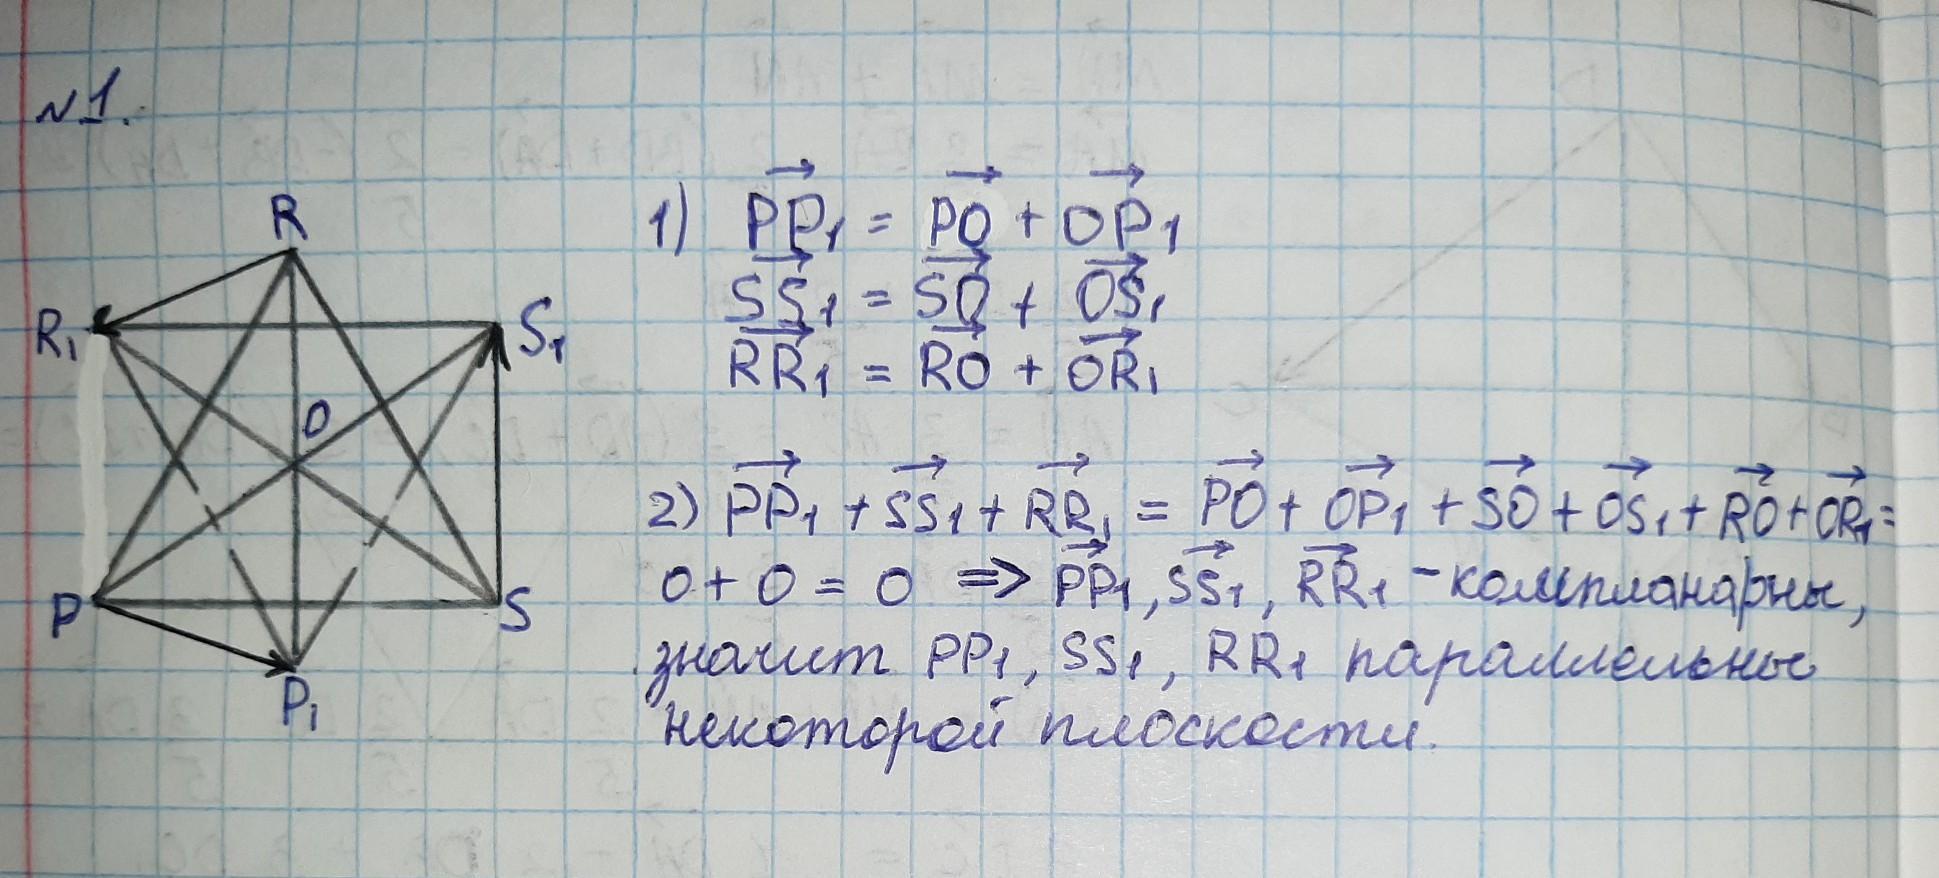 №1.
R
R₁
S₁
O
P
S
P₁
1) PP₁ = PO + OP₁
SS₁ = SO + OS₁
RR₁ = RO + OR₁
2) PP₁ + SS₁ + RR₁ = PO + OP₁ + SO + OS₁ + RO + OR₁ =
0 + 0 = 0 => PP₁, SS₁, RR₁ - компланарны,
значит PP₁, SS₁, RR₁ параллельны
некоторой плоскости.